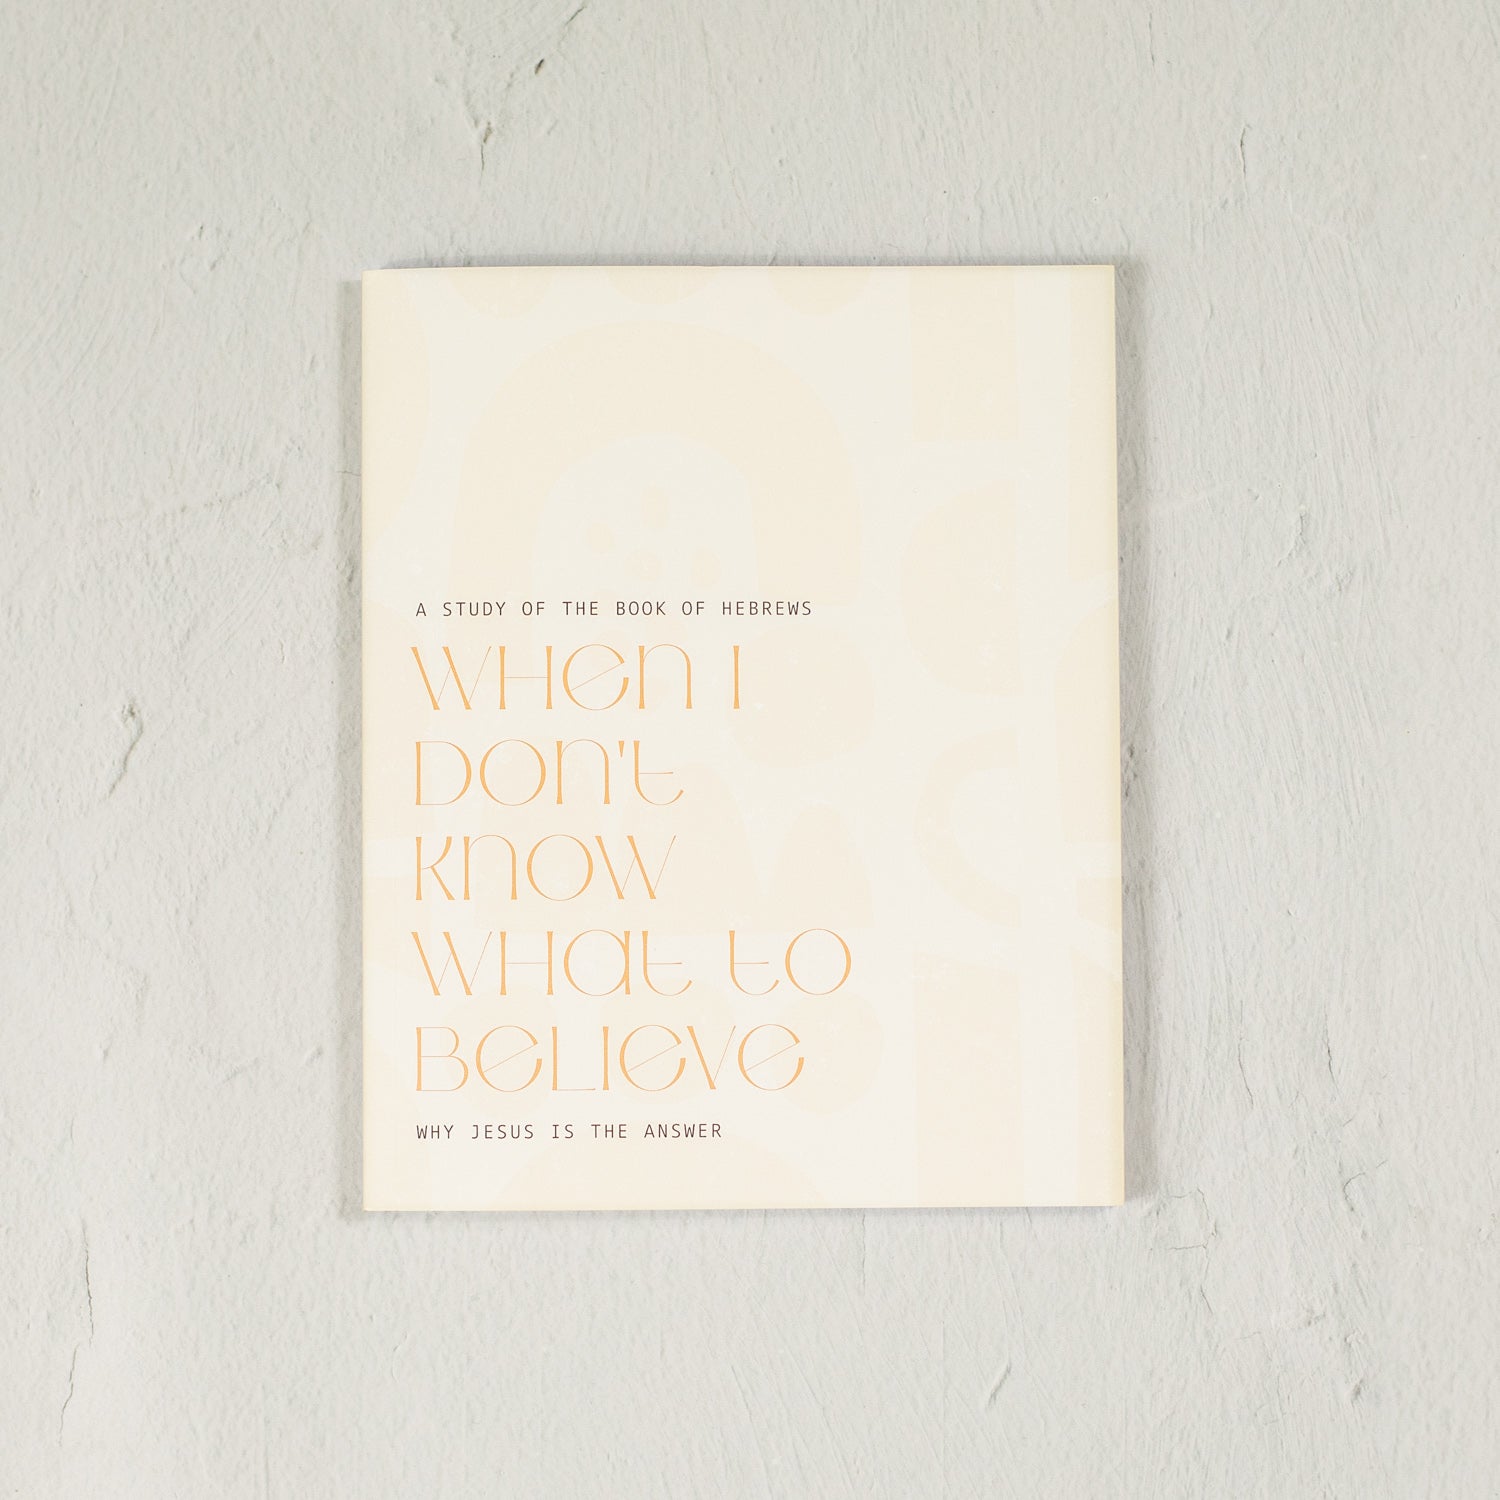 A STUDY OF THE BOOK OF HEBREWS
WHEN I
DON'T
KNOW
WHAT TO
BELIEVE
WHY JESUS IS THE ANSWER